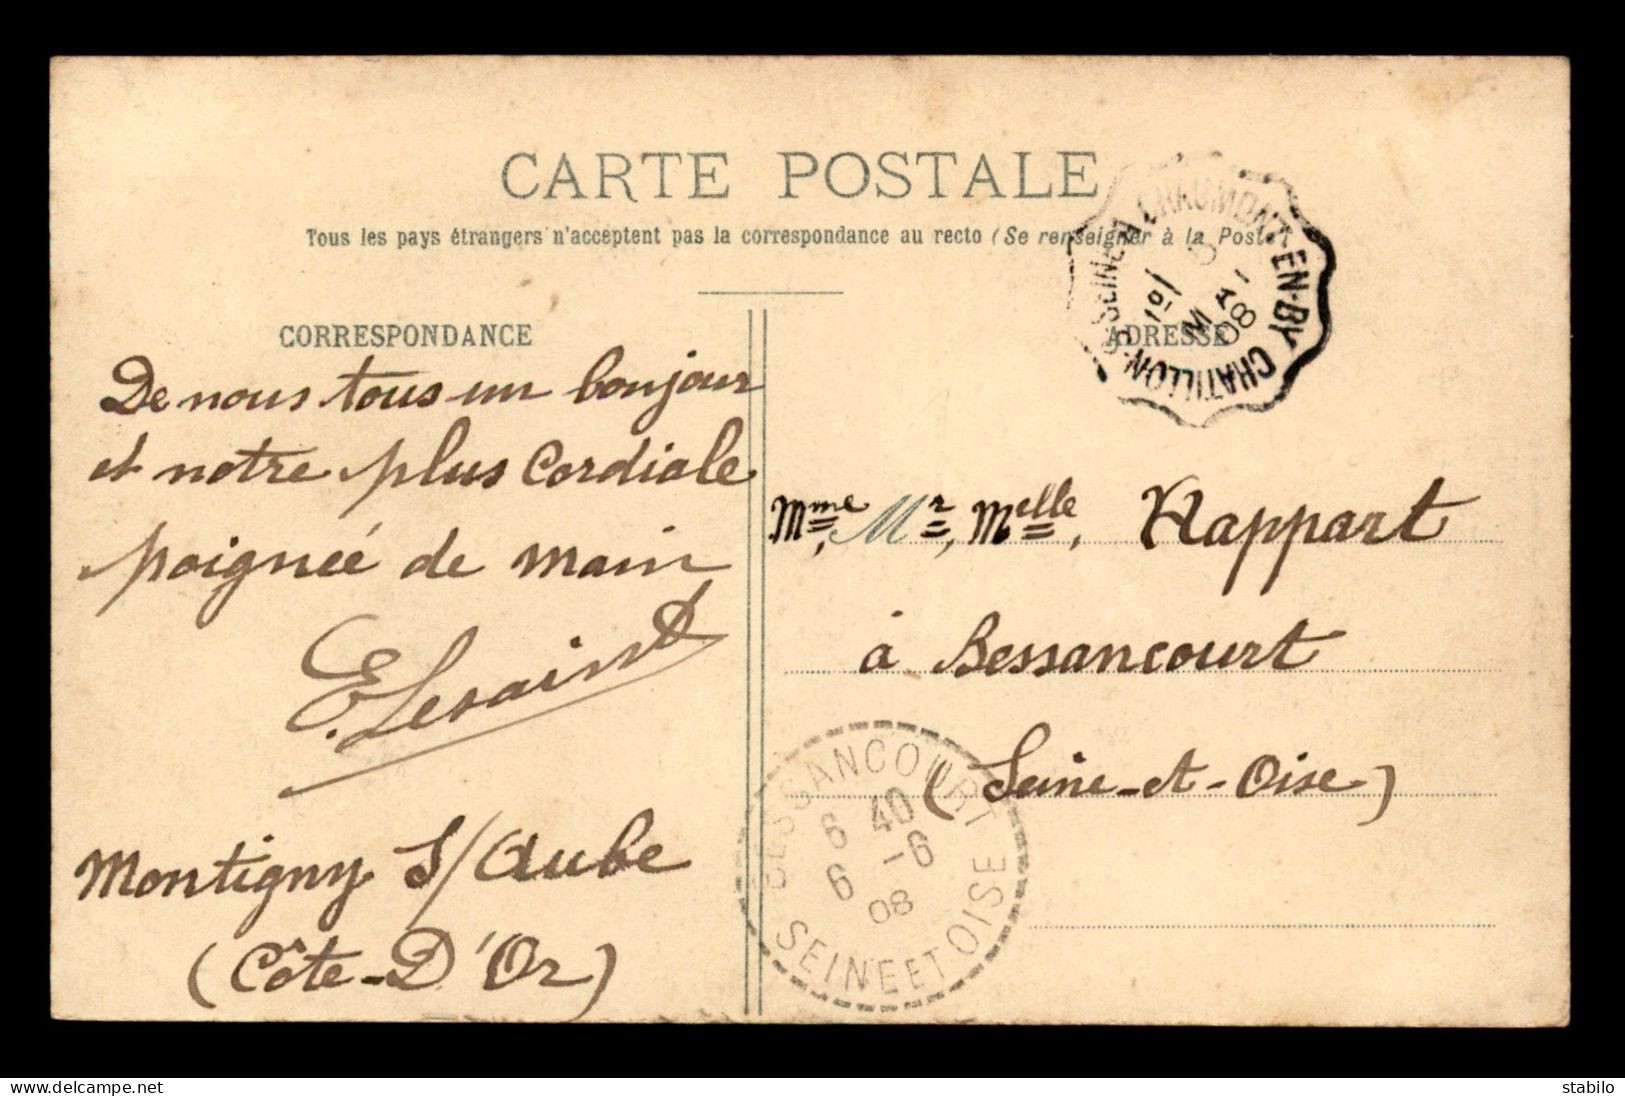 CARTE POSTALE
Tous les pays étrangers n'acceptent pas la correspondance au recto (Se renseigner à la Poste)
CORRESPONDANCE
De nous tous un bonjour
et notre plus Cordiale
poigneé de main
E. Lesaint
Montigny S/Aube
(Côte-D'Or)
ADRESSE
Mme, Mr, Melle, Happart
à Bessancourt
(Seine-et-Oise)
CHAUMONT-EN-BY CHATILLON-S-SEINE
1º/
MAI
08
BESSANCOURT
6 40
6 -6
08
SEINE ET OISE
delcampe.net
stabilo